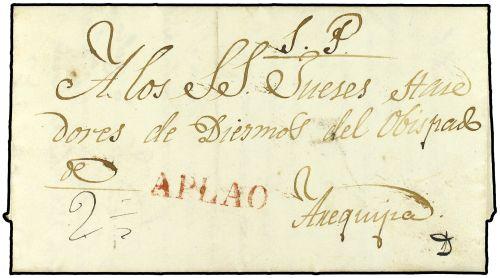 S. P.
A los SS. Jueses Hase
dores de Diesmos del Obispado
de
APLAO
2 1/2
Arequipa.